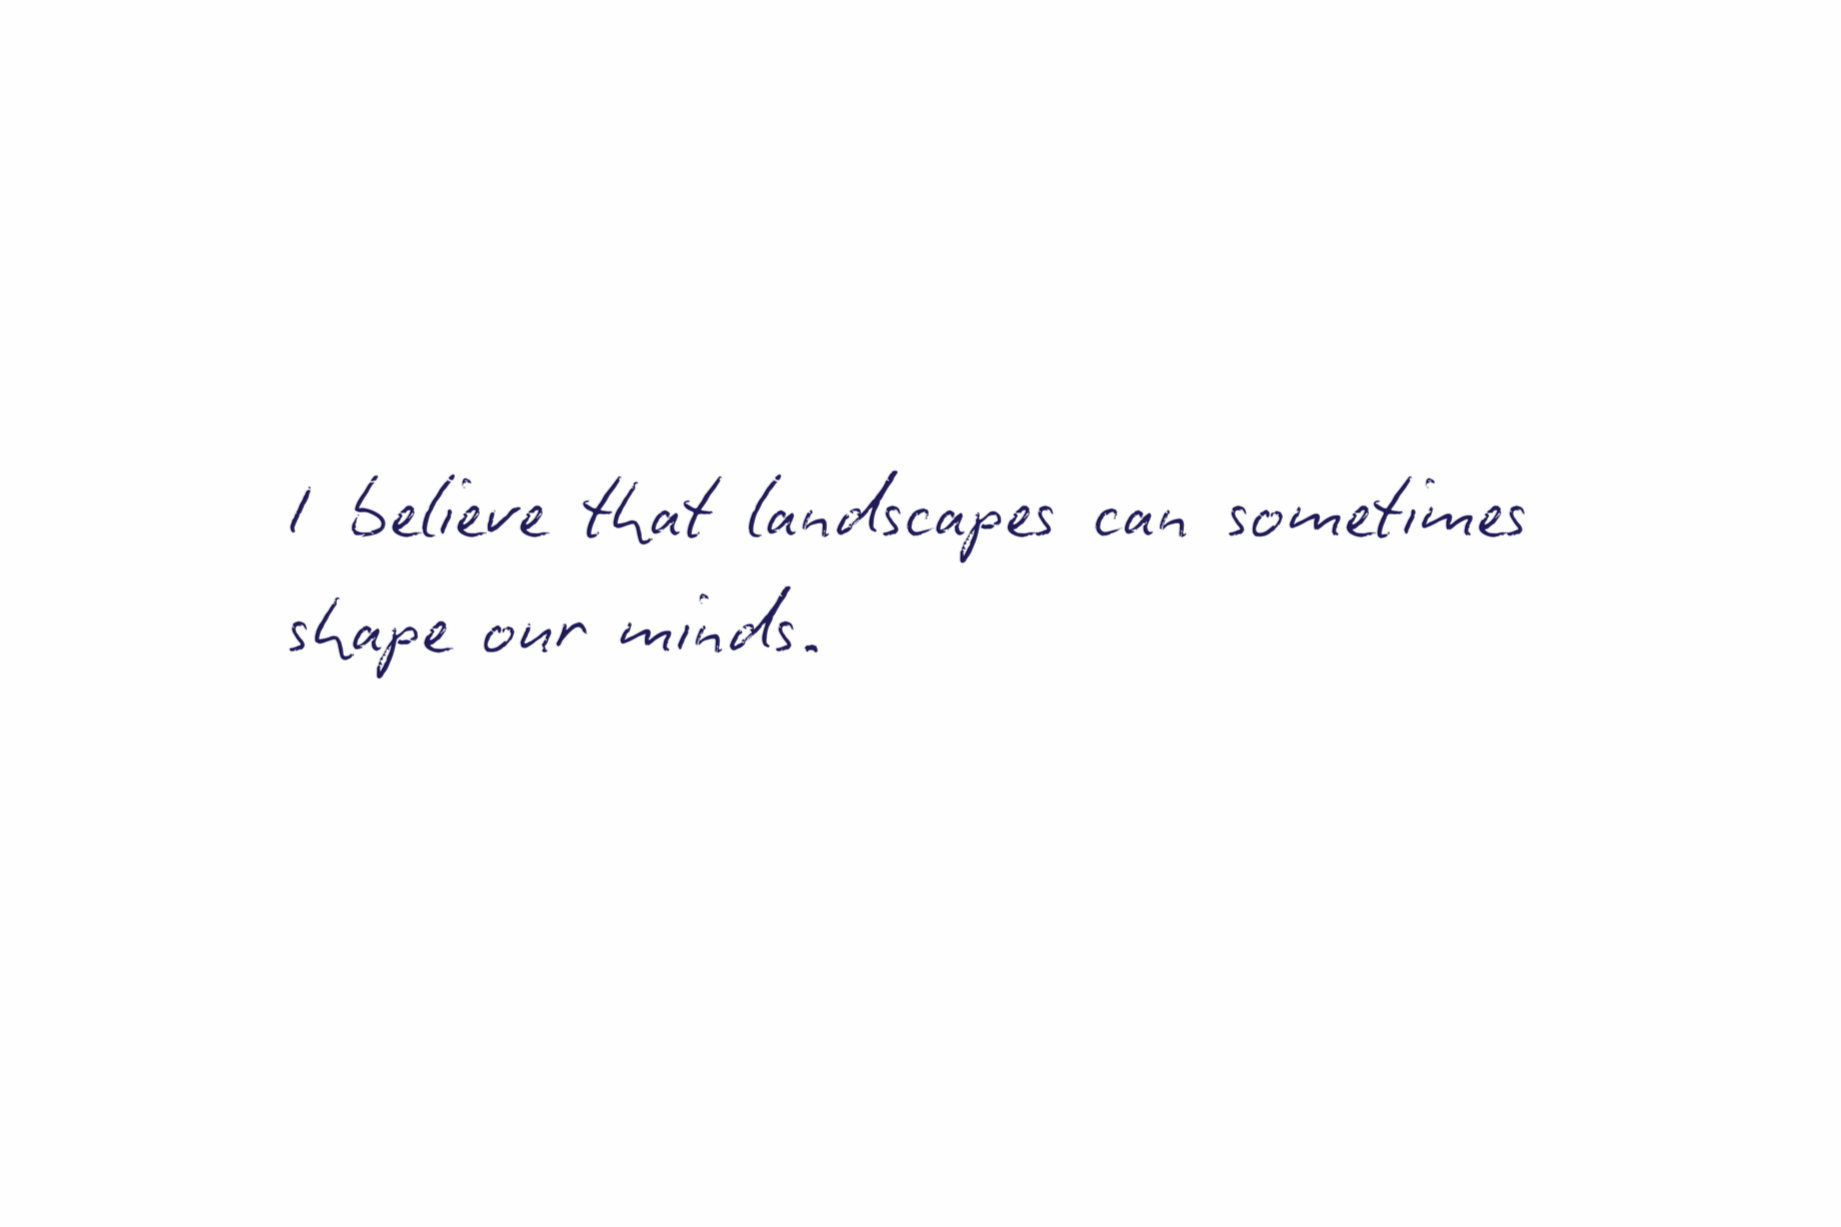 I believe that landscapes can sometimes
shape our minds.